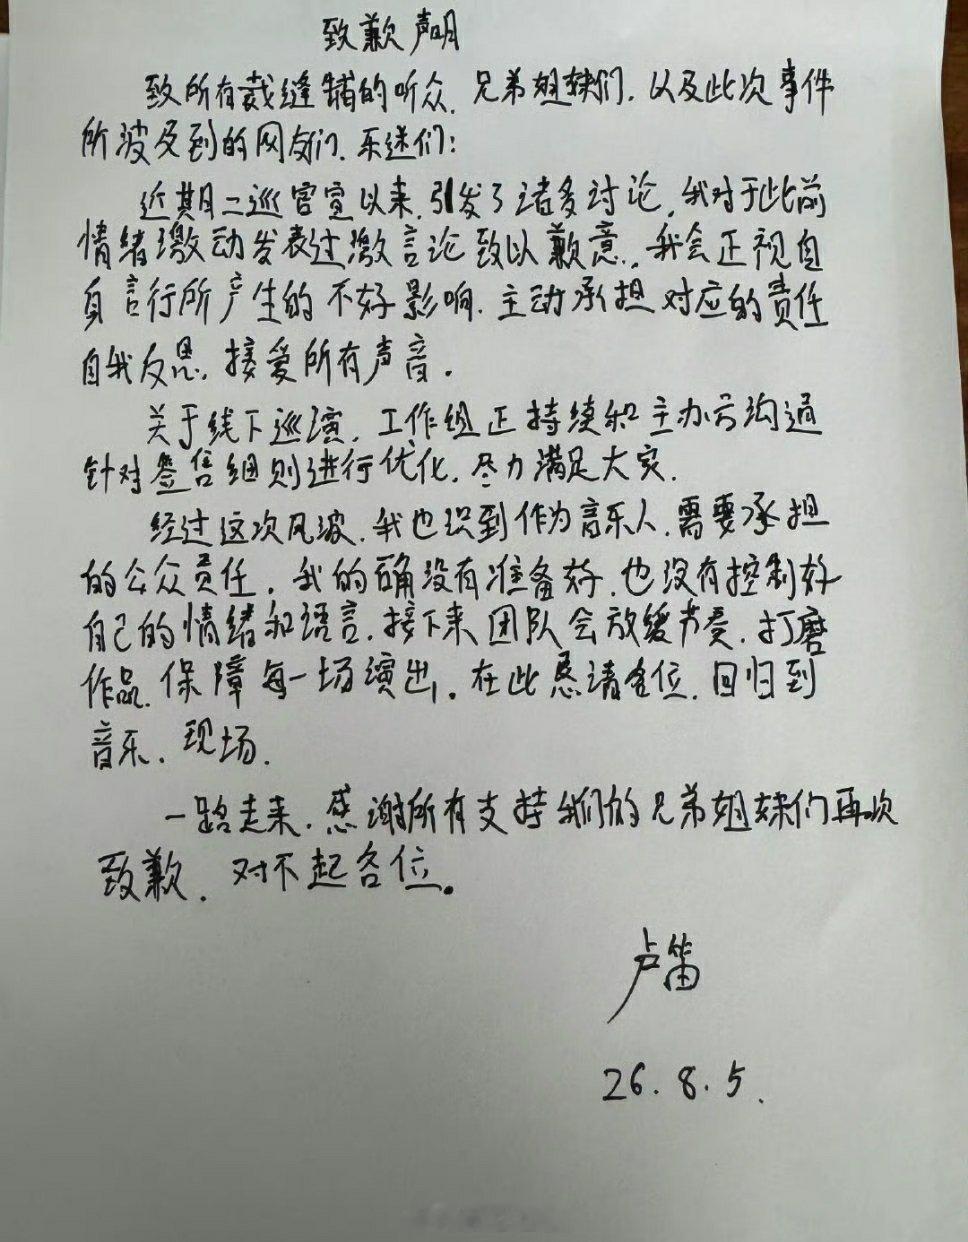 致歉声明
致所有裁缝铺的听众、兄弟姐妹们,以及此次事件
所波及到的网友们、乐迷们:
近期二巡官宣以来,引发了诸多讨论,我对于此前
情绪激动发表过激言论致以歉意,我会正视自
身言行所产生的不好影响,主动承担对应的责任
自我反思,接受所有声音。
关于线下巡演,工作组正持续和主办方沟通
针对签售细则进行优化,尽力满足大家.
经过这次风波,我也识到作为音乐人,需要承担
的公众责任,我的确没有准备好,也没有控制好
自己的情绪和语言,接下来团队会放缓节奏,打磨
作品,保障每一场演出。在此恳请各位,回归到
音乐、现场.
一路走来,感谢所有支持我们的兄弟姐妹们再次
致歉,对不起各位。
卢笛
26.8.5.